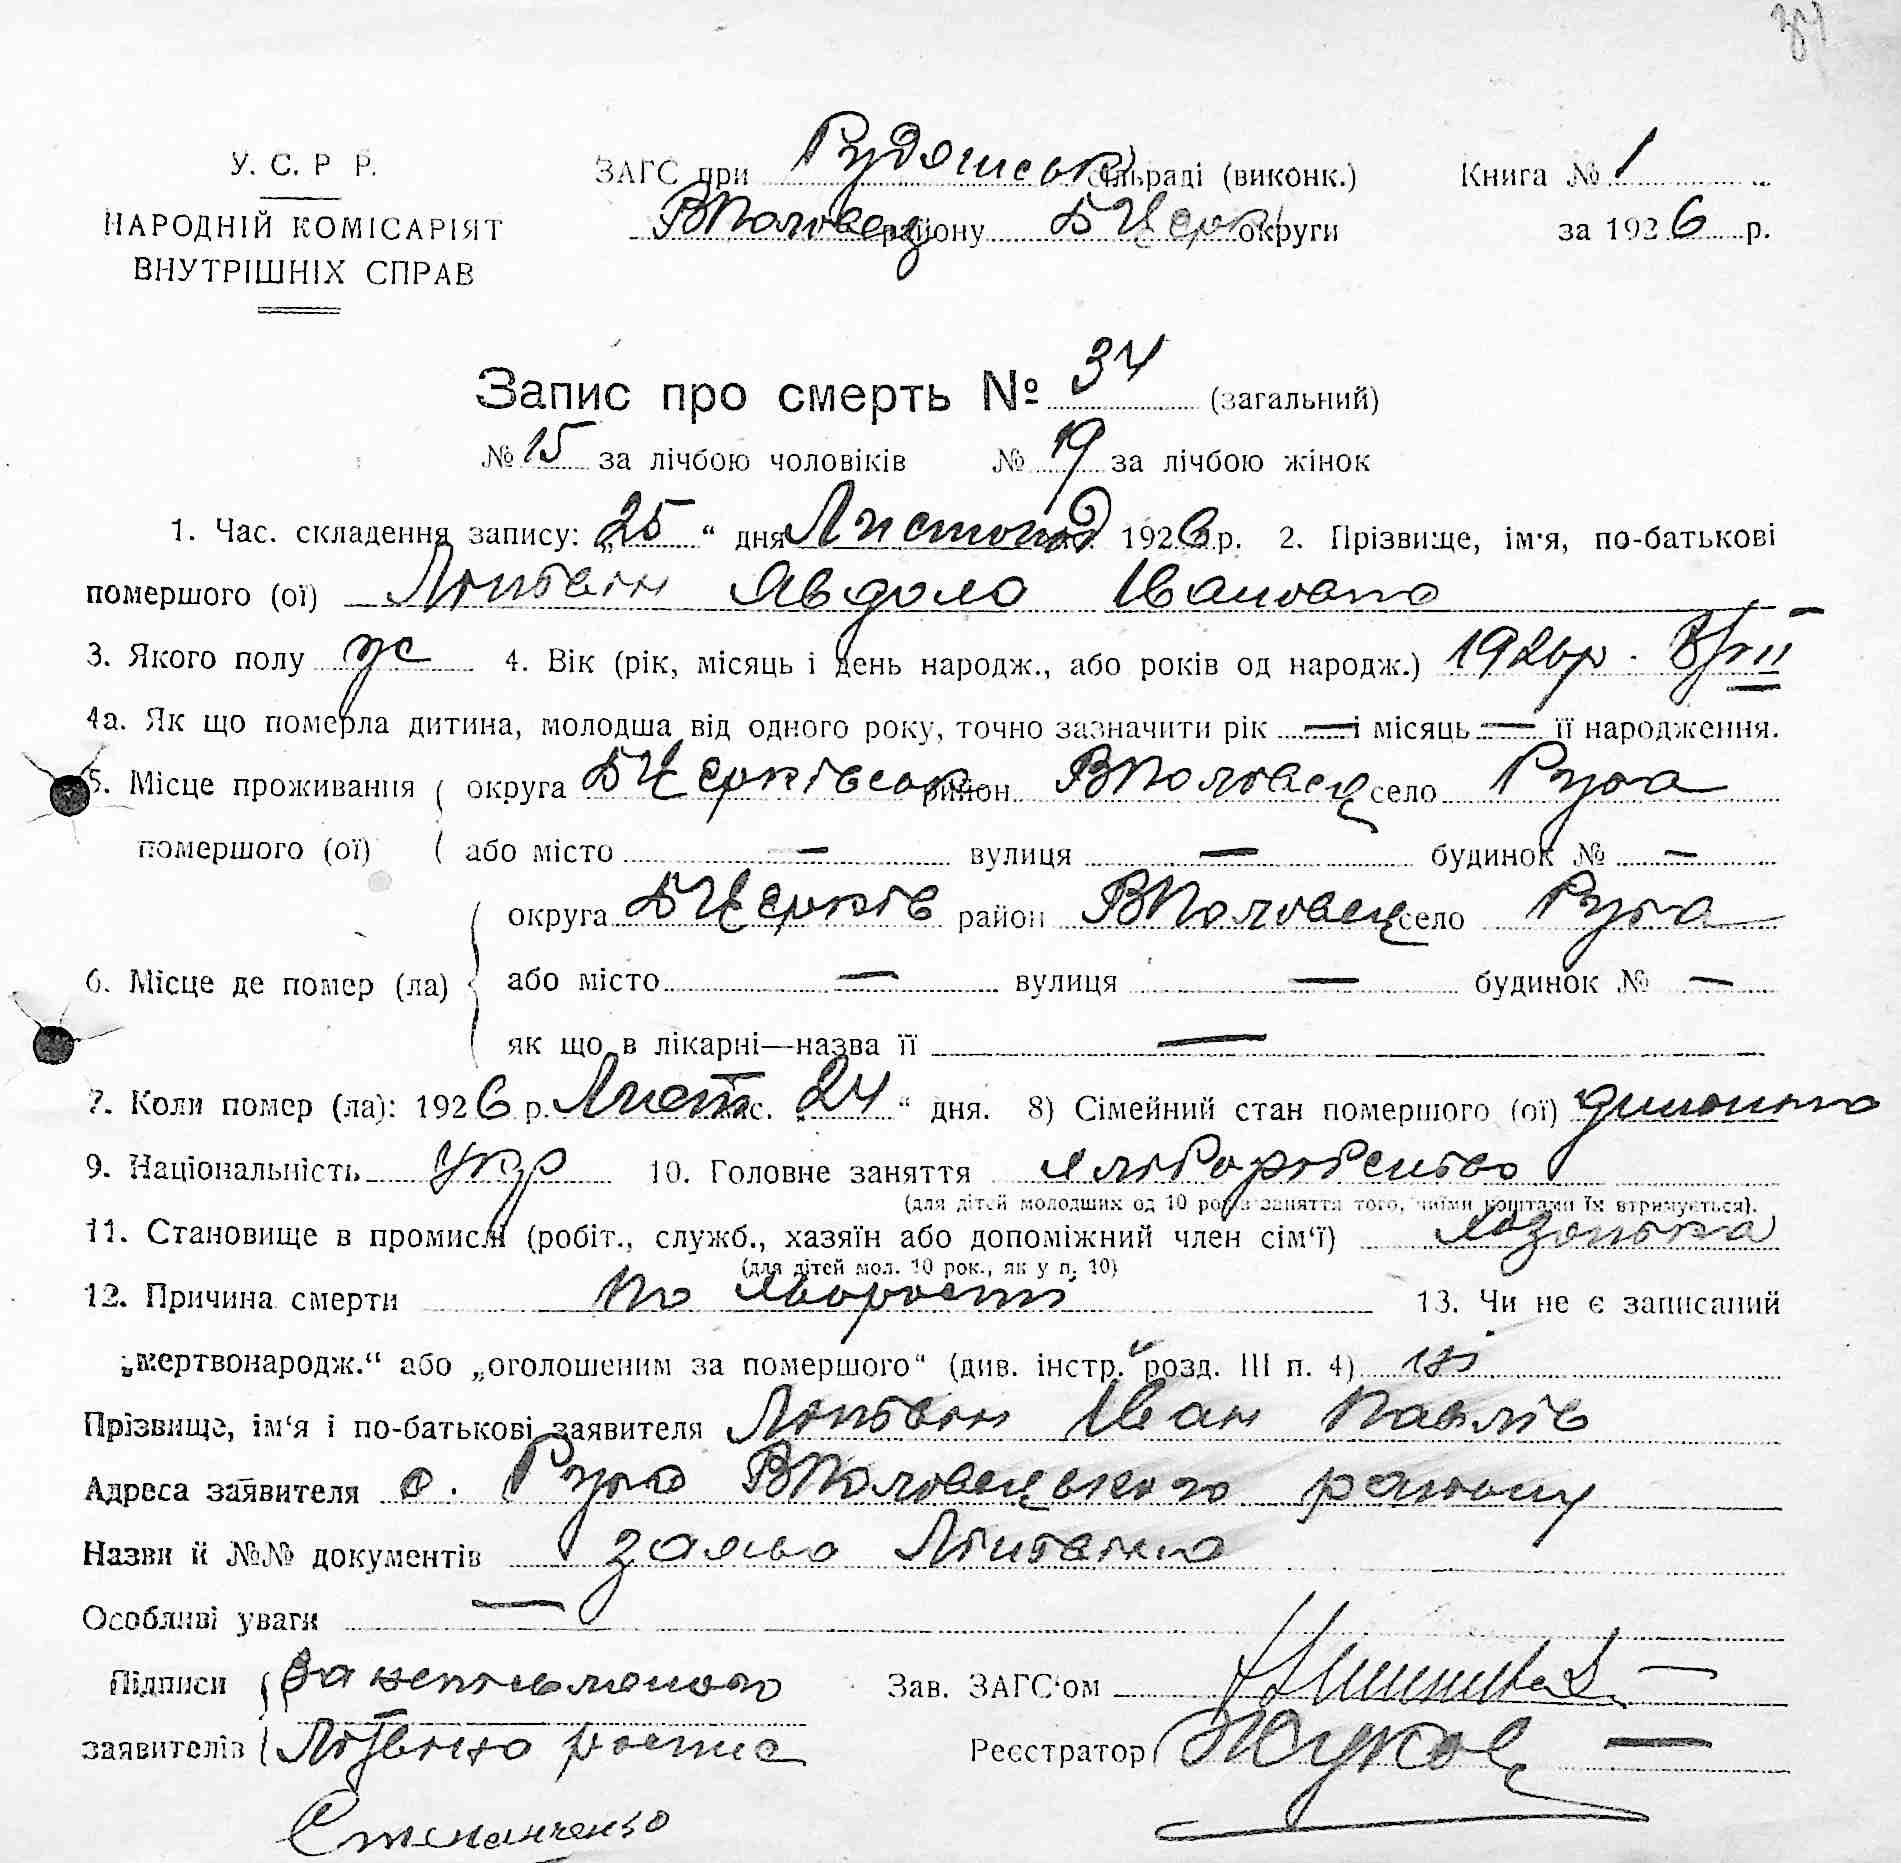 34
У. С. Р Р.
НАРОДНІЙ КОМІСАРІЯТ
ВНУТРІШНІХ СПРАВ
ЗАГС при сільраді (виконк.) Книга № 1
ВПоловец району БЦерк округи за 1926 р.
Запис про смерть № 34 (загальний)
№ 15 за лічбою чоловіків № 19 за лічбою жінок
1. Час. складення запису: „25“ дня Листопад 1926 р. 2. Прізвище, ім'я, по-батькові
помершого (ої) Литвин Явдоха Івановна
3. Якого полу ж 4. Вік (рік, місяць і день народж., або років од народж.) 1926р.
4а. Як що померла дитина, молодша від одного року, точно зазначити рік — і місяць — її народження.
5. Місце проживання округа БЦерківськ район ВПоловец село Руда
помершого (ої) або місто — вулиця — будинок № —
округа БЦерків район ВПоловец село Руда
6. Місце де помер (ла) або місто — вулиця — будинок № —
як що в лікарні—назва її —
7. Коли помер (ла): 1926 р. Лист міс. 24“ дня. 8) Сімейний стан помершого (ої) дитина
9. Національність Укр 10. Головне заняття хліборобство
(для дітей молодших од 10 років заняття того, чиїми коштами їх втримується).
11. Становище в промислі (робіт., служб., хазяїн або допоміжний член сім'ї)
(для дітей мол. 10 рок., як у п. 10)
12. Причина смерти По хворості 13. Чи не є записаний
„мертвонародж.“ або „оголошеним за помершого“ (див. інстр. розд. III п. 4) ні
Прізвище, ім'я і по-батькові заявителя Литвин Іван Павлів
Адреса заявителя с. Руда ВПоловецького району
Назви й №№ документів заява Литвина
Особливі уваги —
Підписи За неписьменого Зав. ЗАГС'ом —
заявителів Литвина росписа Реєстратор Жуков —
Степанченко